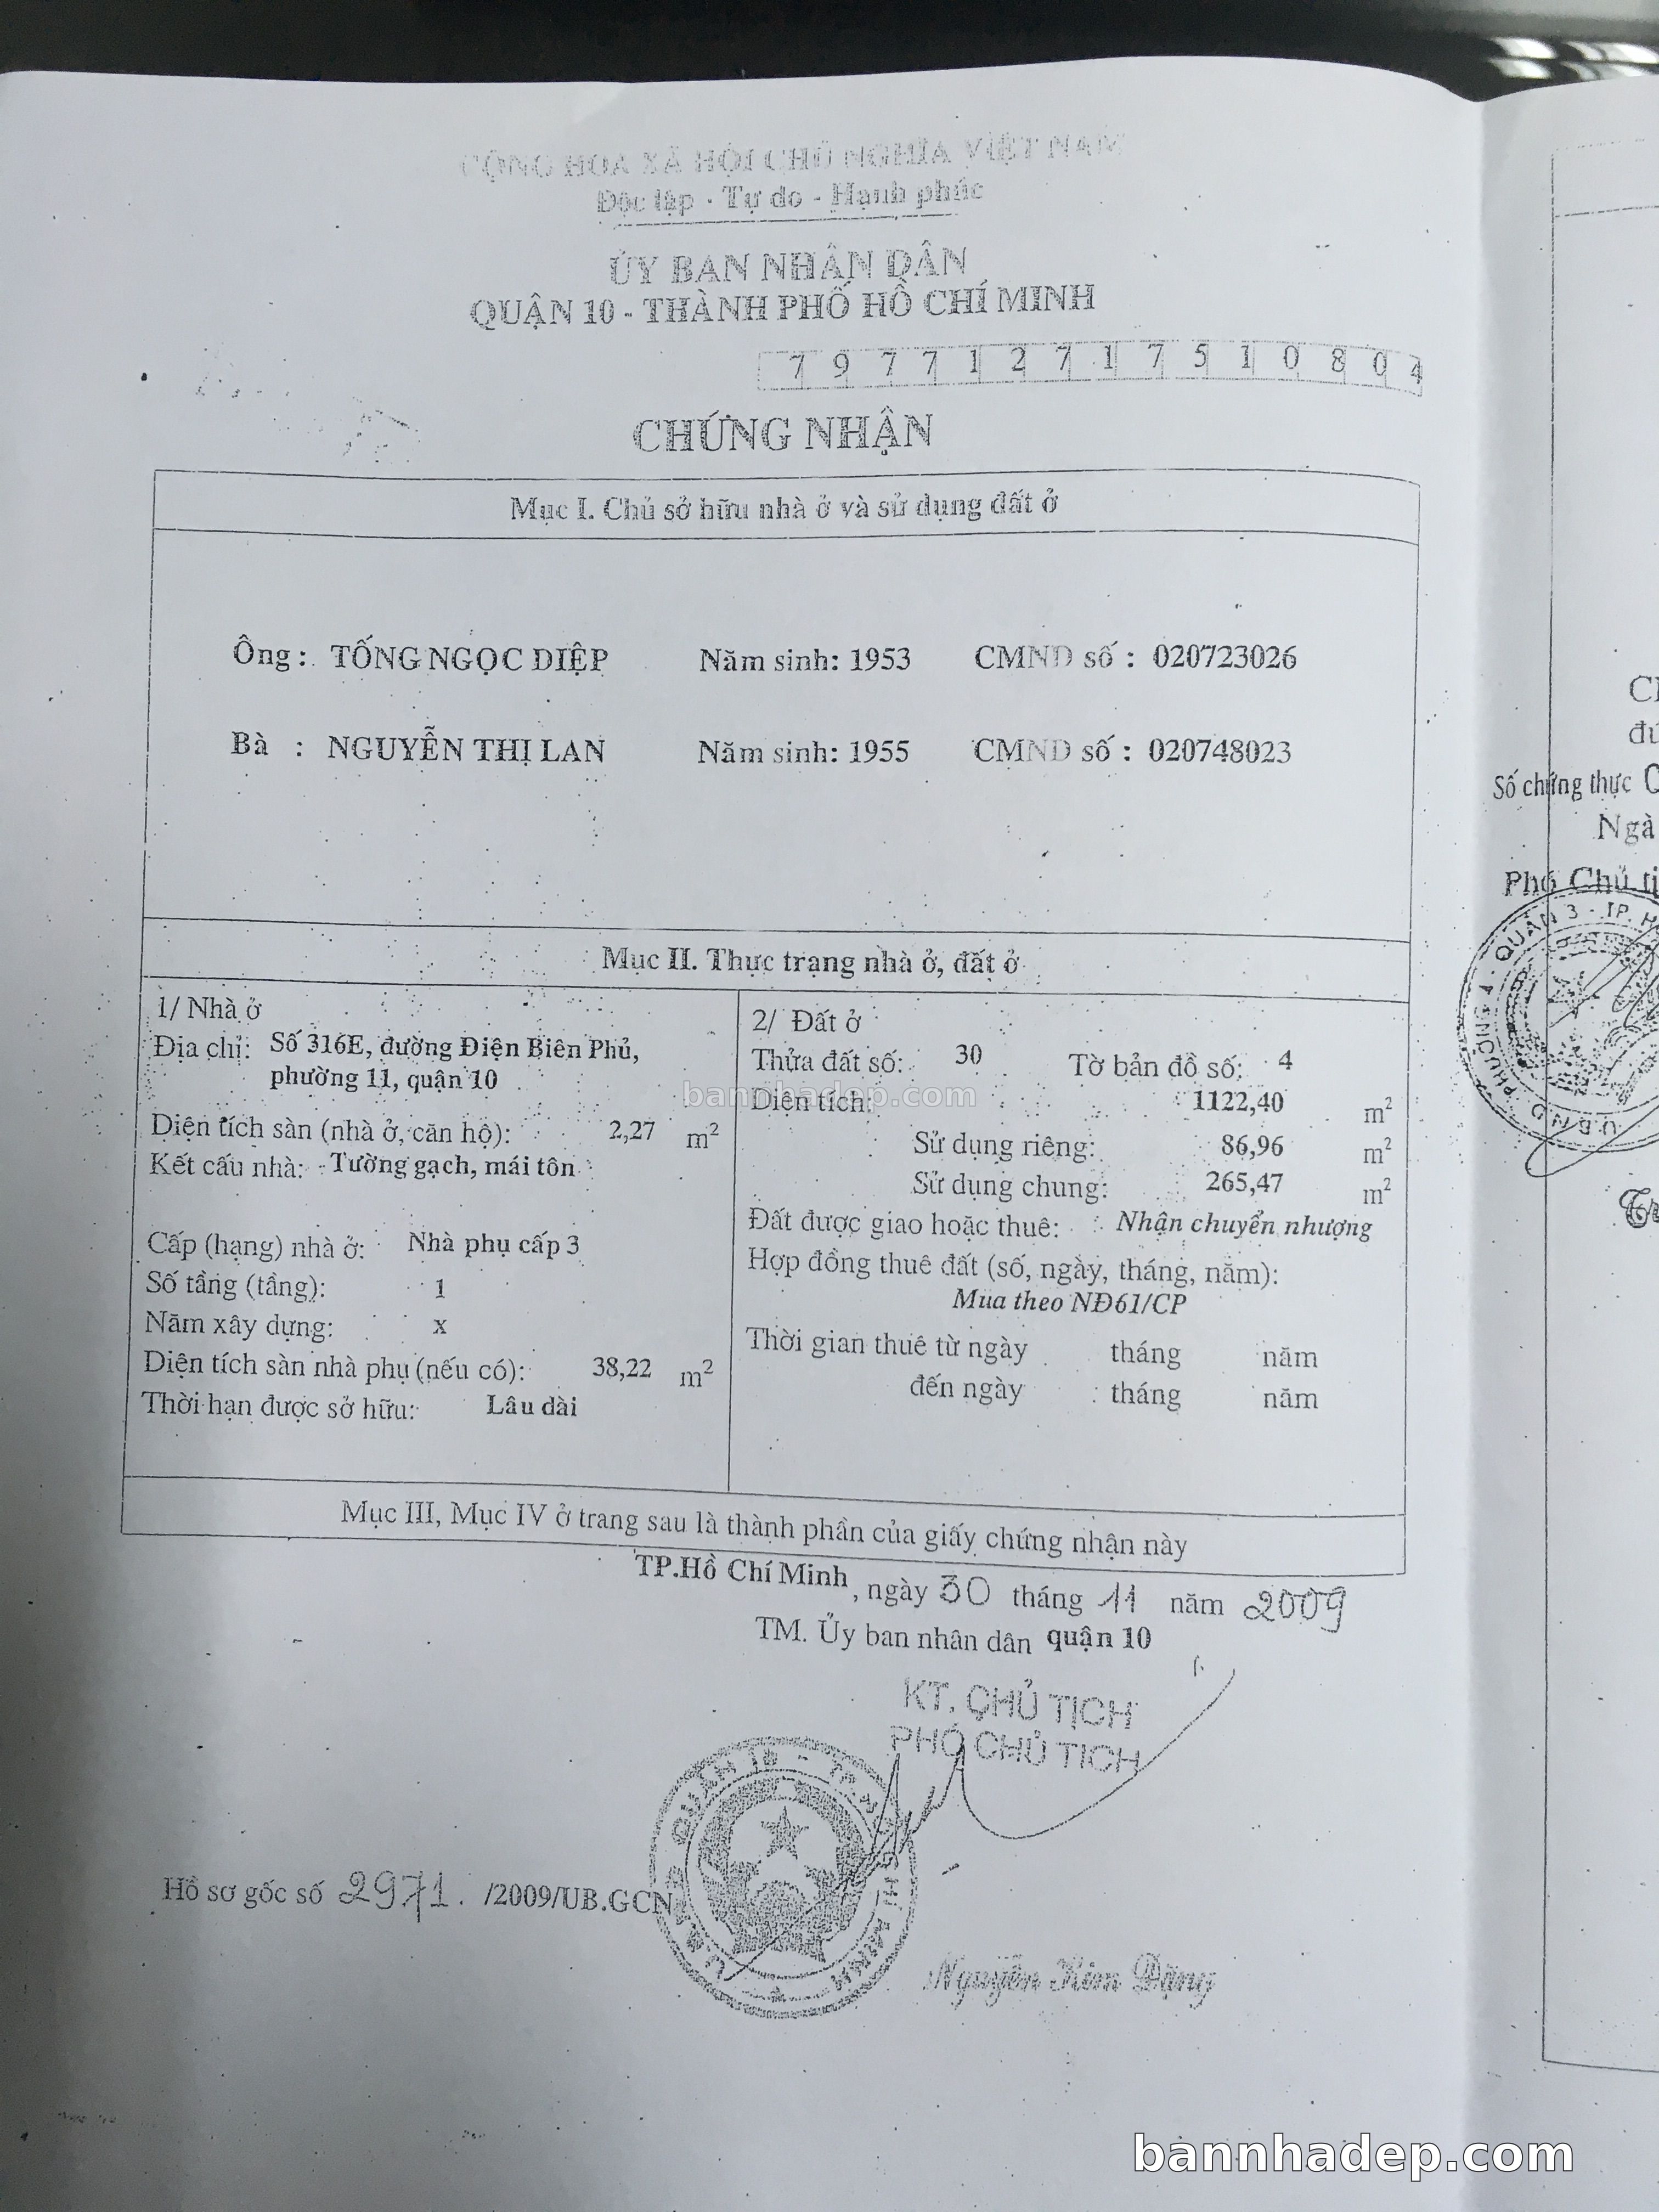 CỘNG HÒA XÃ HỘI CHỦ NGHĨA VIỆT NAM
Độc lập - Tự do - Hạnh phúc
ỦY BAN NHÂN DÂN
QUẬN 10 - THÀNH PHỐ HỒ CHÍ MINH
7 9 7 7 1 2 7 1 7 5 1 0 8 0 4
CHỨNG NHẬN
Mục I. Chủ sở hữu nhà ở và sử dụng đất ở
Ông : TỐNG NGỌC DIỆP Năm sinh: 1953 CMND số : 020723026
Bà : NGUYỄN THỊ LAN Năm sinh: 1955 CMND số : 020748023
Mục II. Thực trạng nhà ở, đất ở
1/ Nhà ở
Địa chỉ: Số 316E, đường Điện Biên Phủ,
phường 11, quận 10
Diện tích sàn (nhà ở, căn hộ): 2,27 m²
Kết cấu nhà: Tường gạch, mái tôn
Cấp (hạng) nhà ở: Nhà phụ cấp 3
Số tầng (tầng): 1
Năm xây dựng: x
Diện tích sàn nhà phụ (nếu có): 38,22 m²
Thời hạn được sở hữu: Lâu dài
2/ Đất ở
Thửa đất số: 30 Tờ bản đồ số: 4
Diện tích: 1122,40 m²
Sử dụng riêng: 86,96 m²
Sử dụng chung: 265,47 m²
Đất được giao hoặc thuê: Nhận chuyển nhượng
Hợp đồng thuê đất (số, ngày, tháng, năm):
Mua theo NĐ61/CP
Thời gian thuê từ ngày tháng năm
đến ngày tháng năm
Mục III, Mục IV ở trang sau là thành phần của giấy chứng nhận này
TP.Hồ Chí Minh, ngày 30 tháng 11 năm 2009
TM. Ủy ban nhân dân quận 10
KT. CHỦ TỊCH
PHÓ CHỦ TỊCH
QUẬN 10 - TP. HỒ CHÍ MINH
Hồ sơ gốc số 2971. /2009/UB.GCN
Nguyễn Kim Đặng
Số chứng thực
Ngà
Phó Chủ tị
U.B.N.D PHƯỜNG 4 - QUẬN 3 - TP. H
bannhadep.com
bannhadep.com